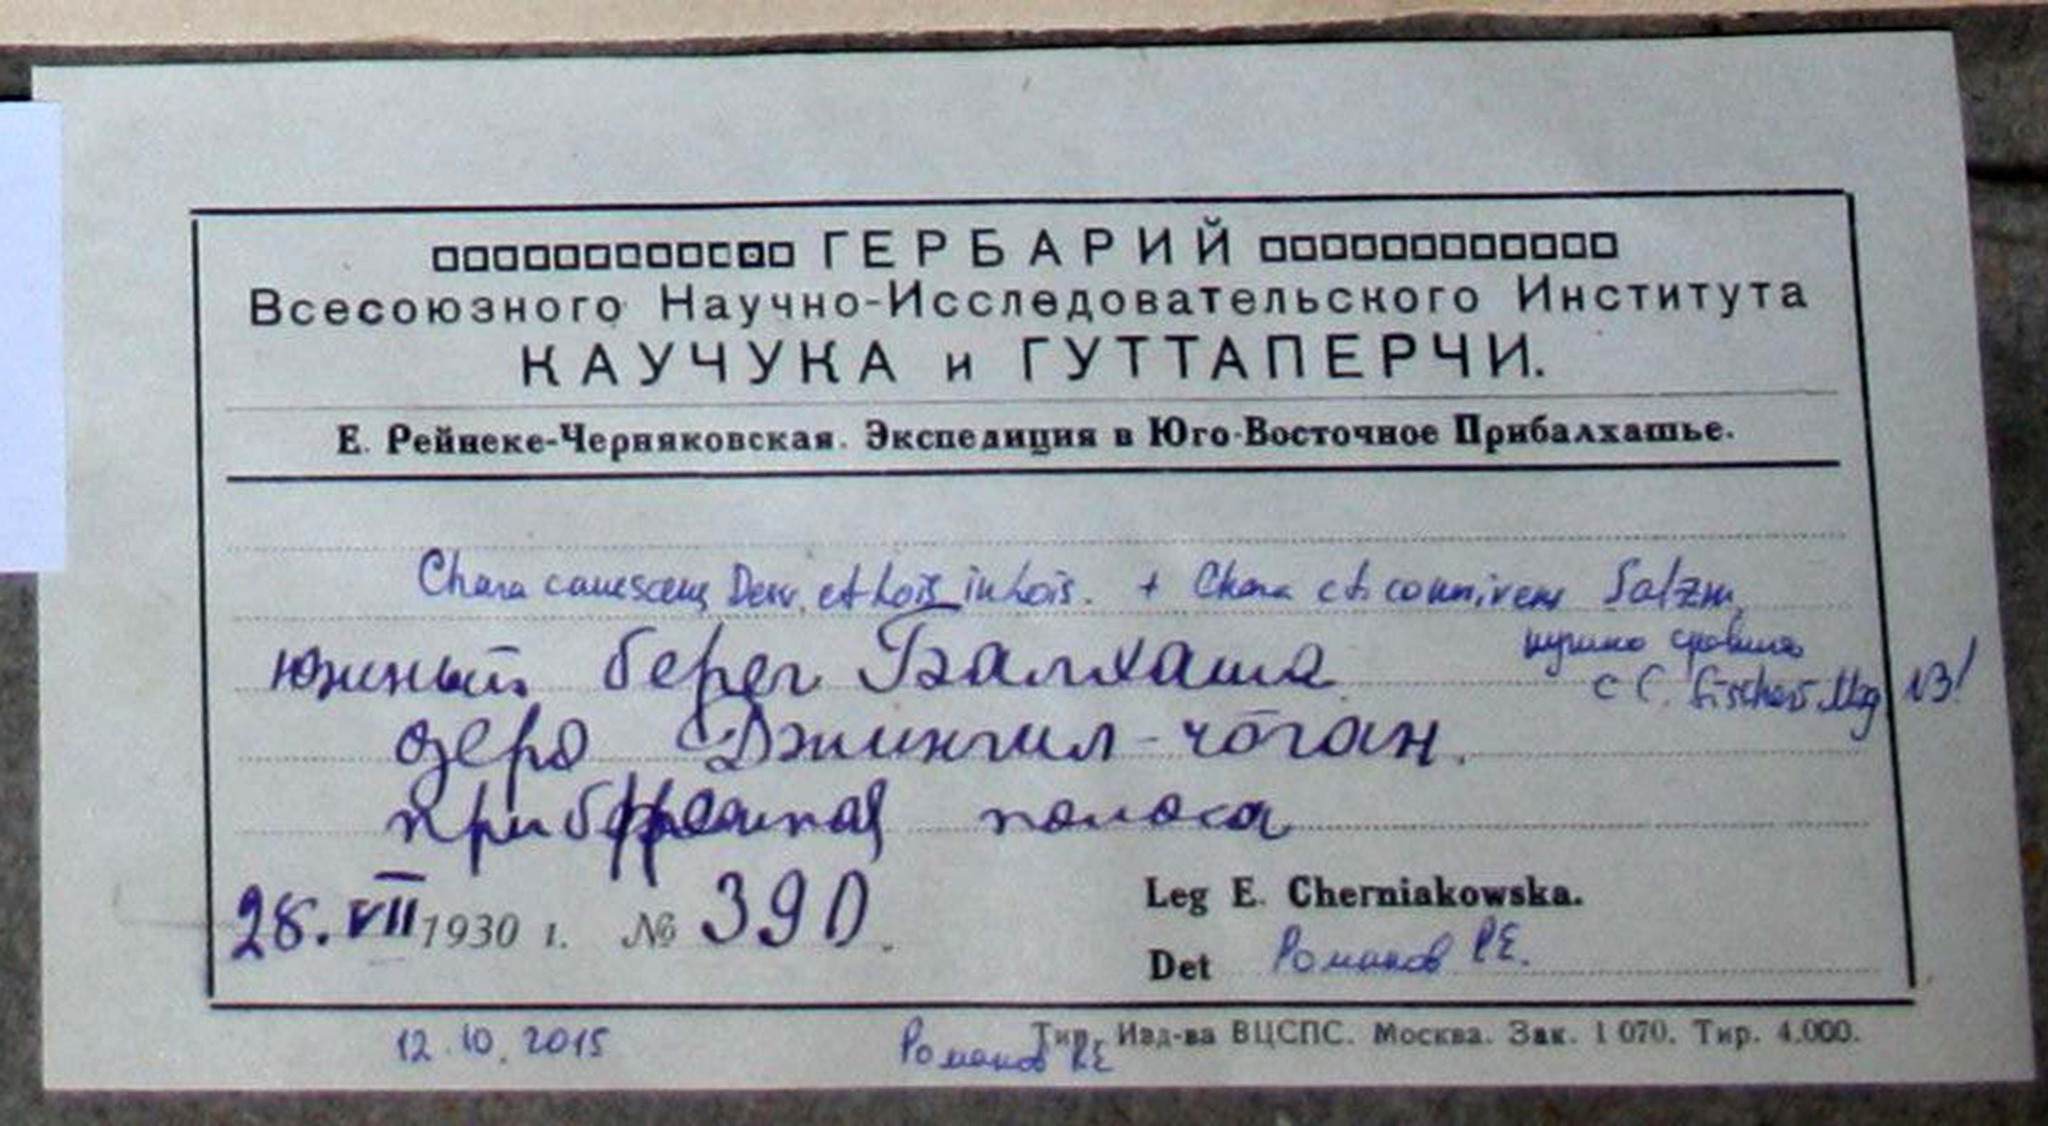 ГЕРБАРИЙ
Всесоюзного Научно-Исследовательского Института
КАУЧУКА и ГУТТАПЕРЧИ.
Е. Рейнеке-Черняковская. Экспедиция в Юго-Восточное Прибалхашье.
Chara canescens Desv. et Lois in Lois. + Chara cf. connivens Salzm.
нужно
южный берег Балхаша
с C. fischeri Mig. NB!
озеро Джингил-чоган.
прибрежная полоса
28.VII 1930 г. № 390.
Leg E. Cherniakowska.
Det Романов Р.Е.
12.10.2015 Романов Р.Е.
Тип. Изд-ва ВЦСПС. Москва. Зак. 1 070. Тир. 4.000.